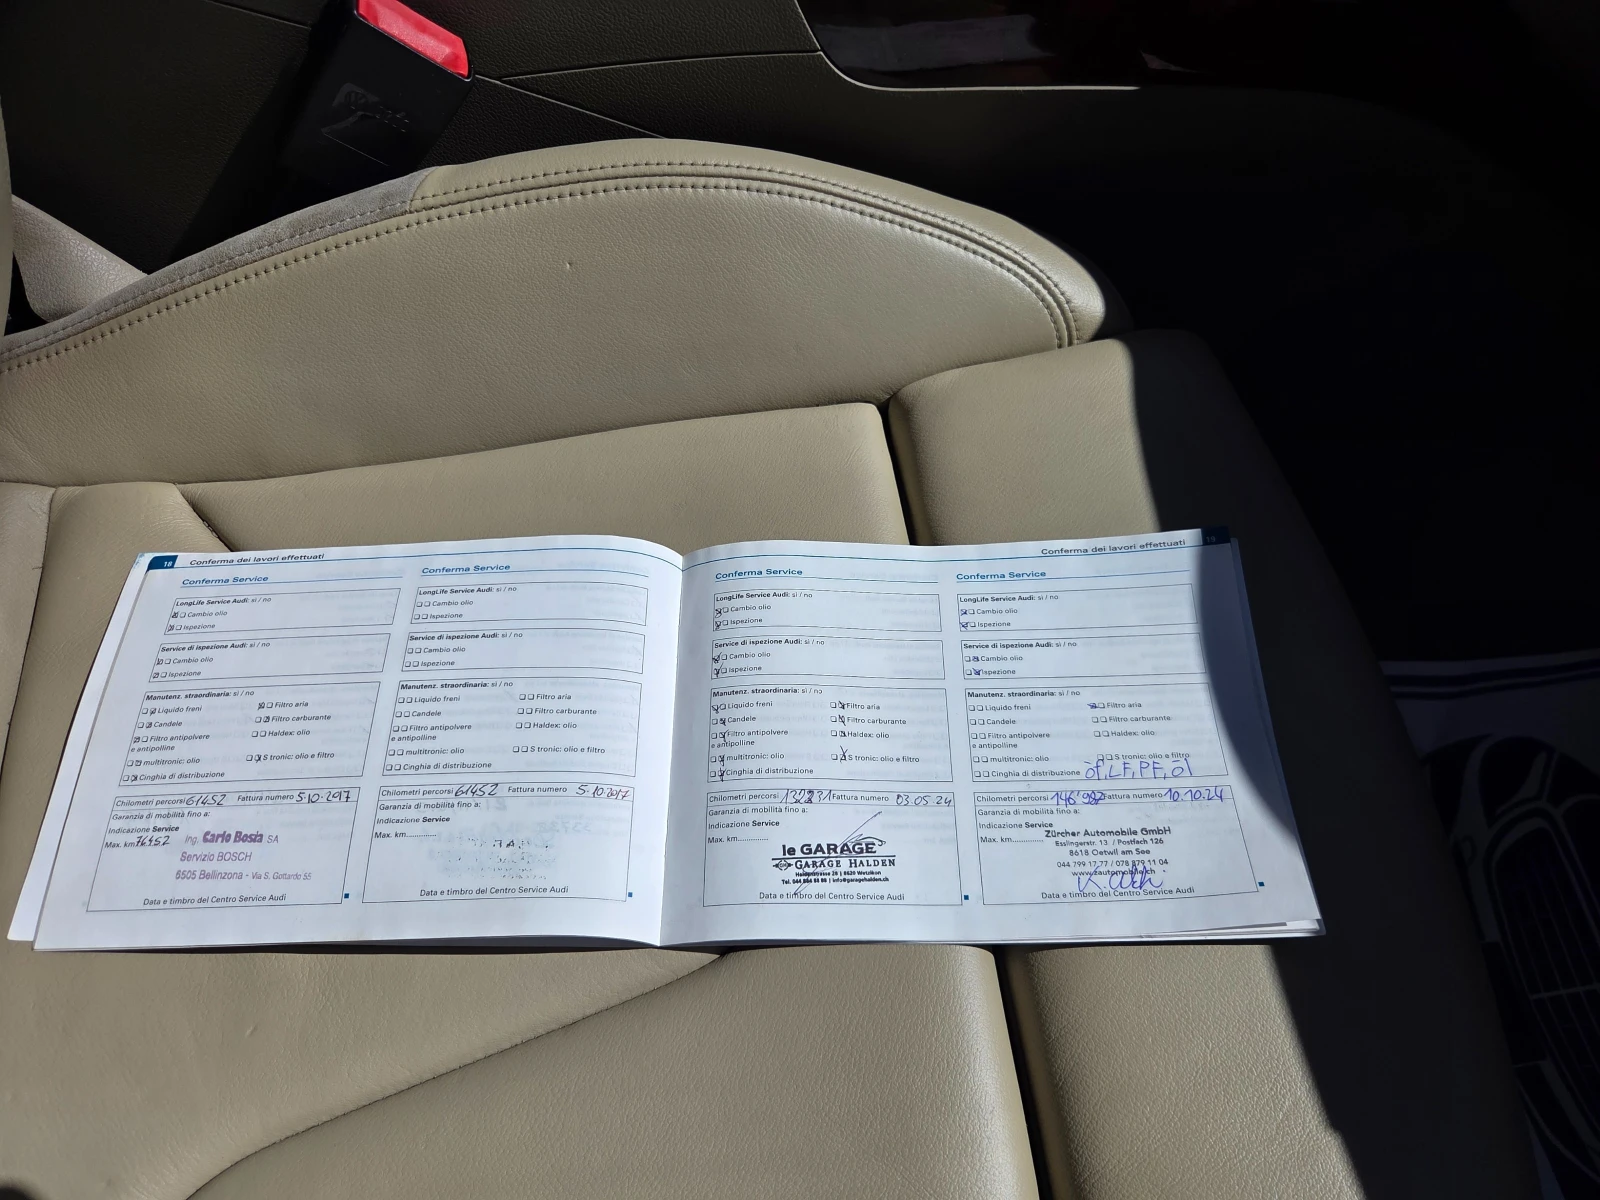 18 Conferma dei lavori effettuati
Conferma Service
LongLife Service Audi: sì / no
Cambio olio
Ispezione
Service di ispezione Audi: sì / no
Cambio olio
Ispezione
Manutenz. straordinaria: sì / no
Liquido freni Filtro aria
Candele Filtro carburante
Filtro antipolvere Haldex: olio
e antipolline
multitronic: olio S tronic: olio e filtro
Cinghia di distribuzione
Chilometri percorsi 61452 Fattura numero 5.10.2017
Garanzia di mobilità fino a:
Indicazione Service
Max. km 76452
ing. Carlo Bosia SA
Servizio BOSCH
6505 Bellinzona - Via S. Gottardo 55
Data e timbro del Centro Service Audi
Conferma Service
LongLife Service Audi: sì / no
Cambio olio
Ispezione
Service di ispezione Audi: sì / no
Cambio olio
Ispezione
Manutenz. straordinaria: sì / no
Liquido freni Filtro aria
Candele Filtro carburante
Filtro antipolvere Haldex: olio
e antipolline
multitronic: olio S tronic: olio e filtro
Cinghia di distribuzione
Chilometri percorsi 61452 Fattura numero 5.10.2017
Garanzia di mobilità fino a:
Indicazione Service
Max. km.............
Data e timbro del Centro Service Audi
Conferma dei lavori effettuati 19
Conferma Service
LongLife Service Audi: sì / no
Cambio olio
Ispezione
Service di ispezione Audi: sì / no
Cambio olio
Ispezione
Manutenz. straordinaria: sì / no
Liquido freni Filtro aria
Candele Filtro carburante
Filtro antipolvere Haldex: olio
e antipolline
multitronic: olio S tronic: olio e filtro
Cinghia di distribuzione
Chilometri percorsi Fattura numero 03.05.24
Garanzia di mobilità fino a:
Indicazione Service
Max. km.............
le GARAGE
GARAGE HALDEN
8620 Wetzikon
info@garagehalden.ch
Data e timbro del Centro Service Audi
Conferma Service
LongLife Service Audi: sì / no
Cambio olio
Ispezione
Service di ispezione Audi: sì / no
Cambio olio
Ispezione
Manutenz. straordinaria: sì / no
Liquido freni Filtro aria
Candele Filtro carburante
Filtro antipolvere Haldex: olio
e antipolline
multitronic: olio S tronic: olio e filtro
Cinghia di distribuzione öf, LF, PF, öl
Chilometri percorsi 146'987 Fattura numero 10.10.24
Garanzia di mobilità fino a:
Indicazione Service
Max. km.............
Zürcher Automobile GmbH
Esslingerstr. 13 / Postfach 126
8618 Oetwil am See
044 799 17 77 / 078 879 11 04
www.zautomobile.ch
Data e timbro del Centro Service Audi